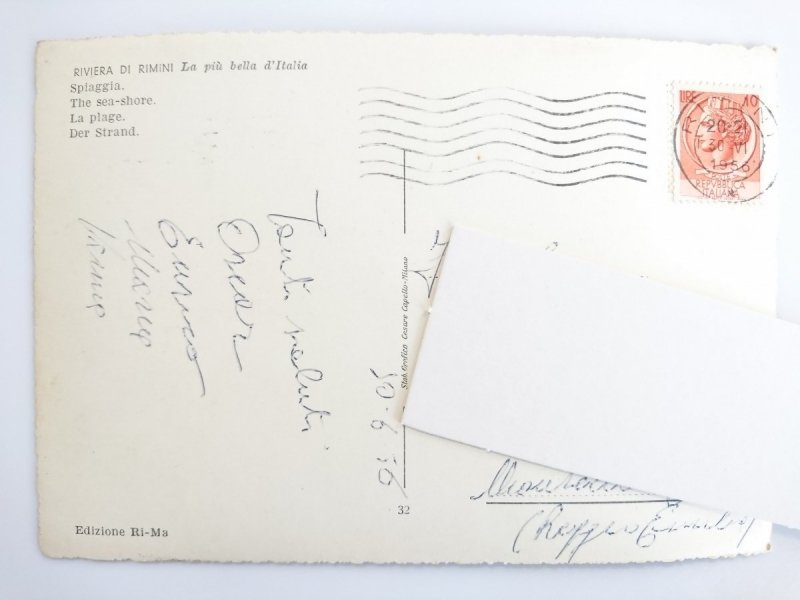 RIVIERA DI RIMINI La più bella d'Italia
Spiaggia.
The sea-shore.
La plage.
Der Strand.
LIRE 10
20-21
30 VI
1956
REPVBBLICA
ITALIANA
Tanti saluti
Oscar
Enrico
30-6-56
Stab. Grafico Cesare Capello-Milano
32
(Reggio Emilia)
Edizione Ri-Ma